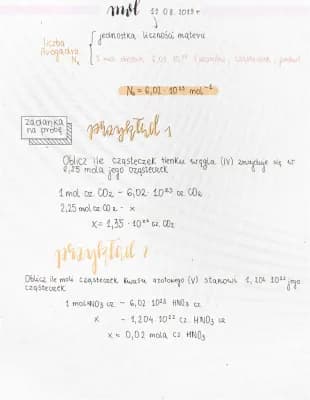 mol 12.08.2019 r
jednostka liczności materii
liczba
Avogadra
Nₐ
1 mol drobin 6,02 · 10²³ (atomów, cząsteczek, jonów)
Nₐ = 6,02 · 10²³ mol⁻¹
zadanka
na próbę
przykład 1
Oblicz ile cząsteczek tlenku węgla (IV) znajduje się w
2,25 mola jego cząsteczek
1 mol cz. CO₂ – 6,02 · 10²³ cz. CO₂
2,25 mol cz. CO₂ – x
x = 1,35 · 10²⁴ cz. CO₂
przykład 2
Oblicz ile moli cząsteczek kwasu azotowego (V) stanowi 1,204 · 10²² jego
cząsteczek
1 mol HNO₃ cz. – 6,02 · 10²³ HNO₃ cz.
x – 1,204 · 10²² cz. HNO₃ cz
x = 0,02 mola cz HNO₃